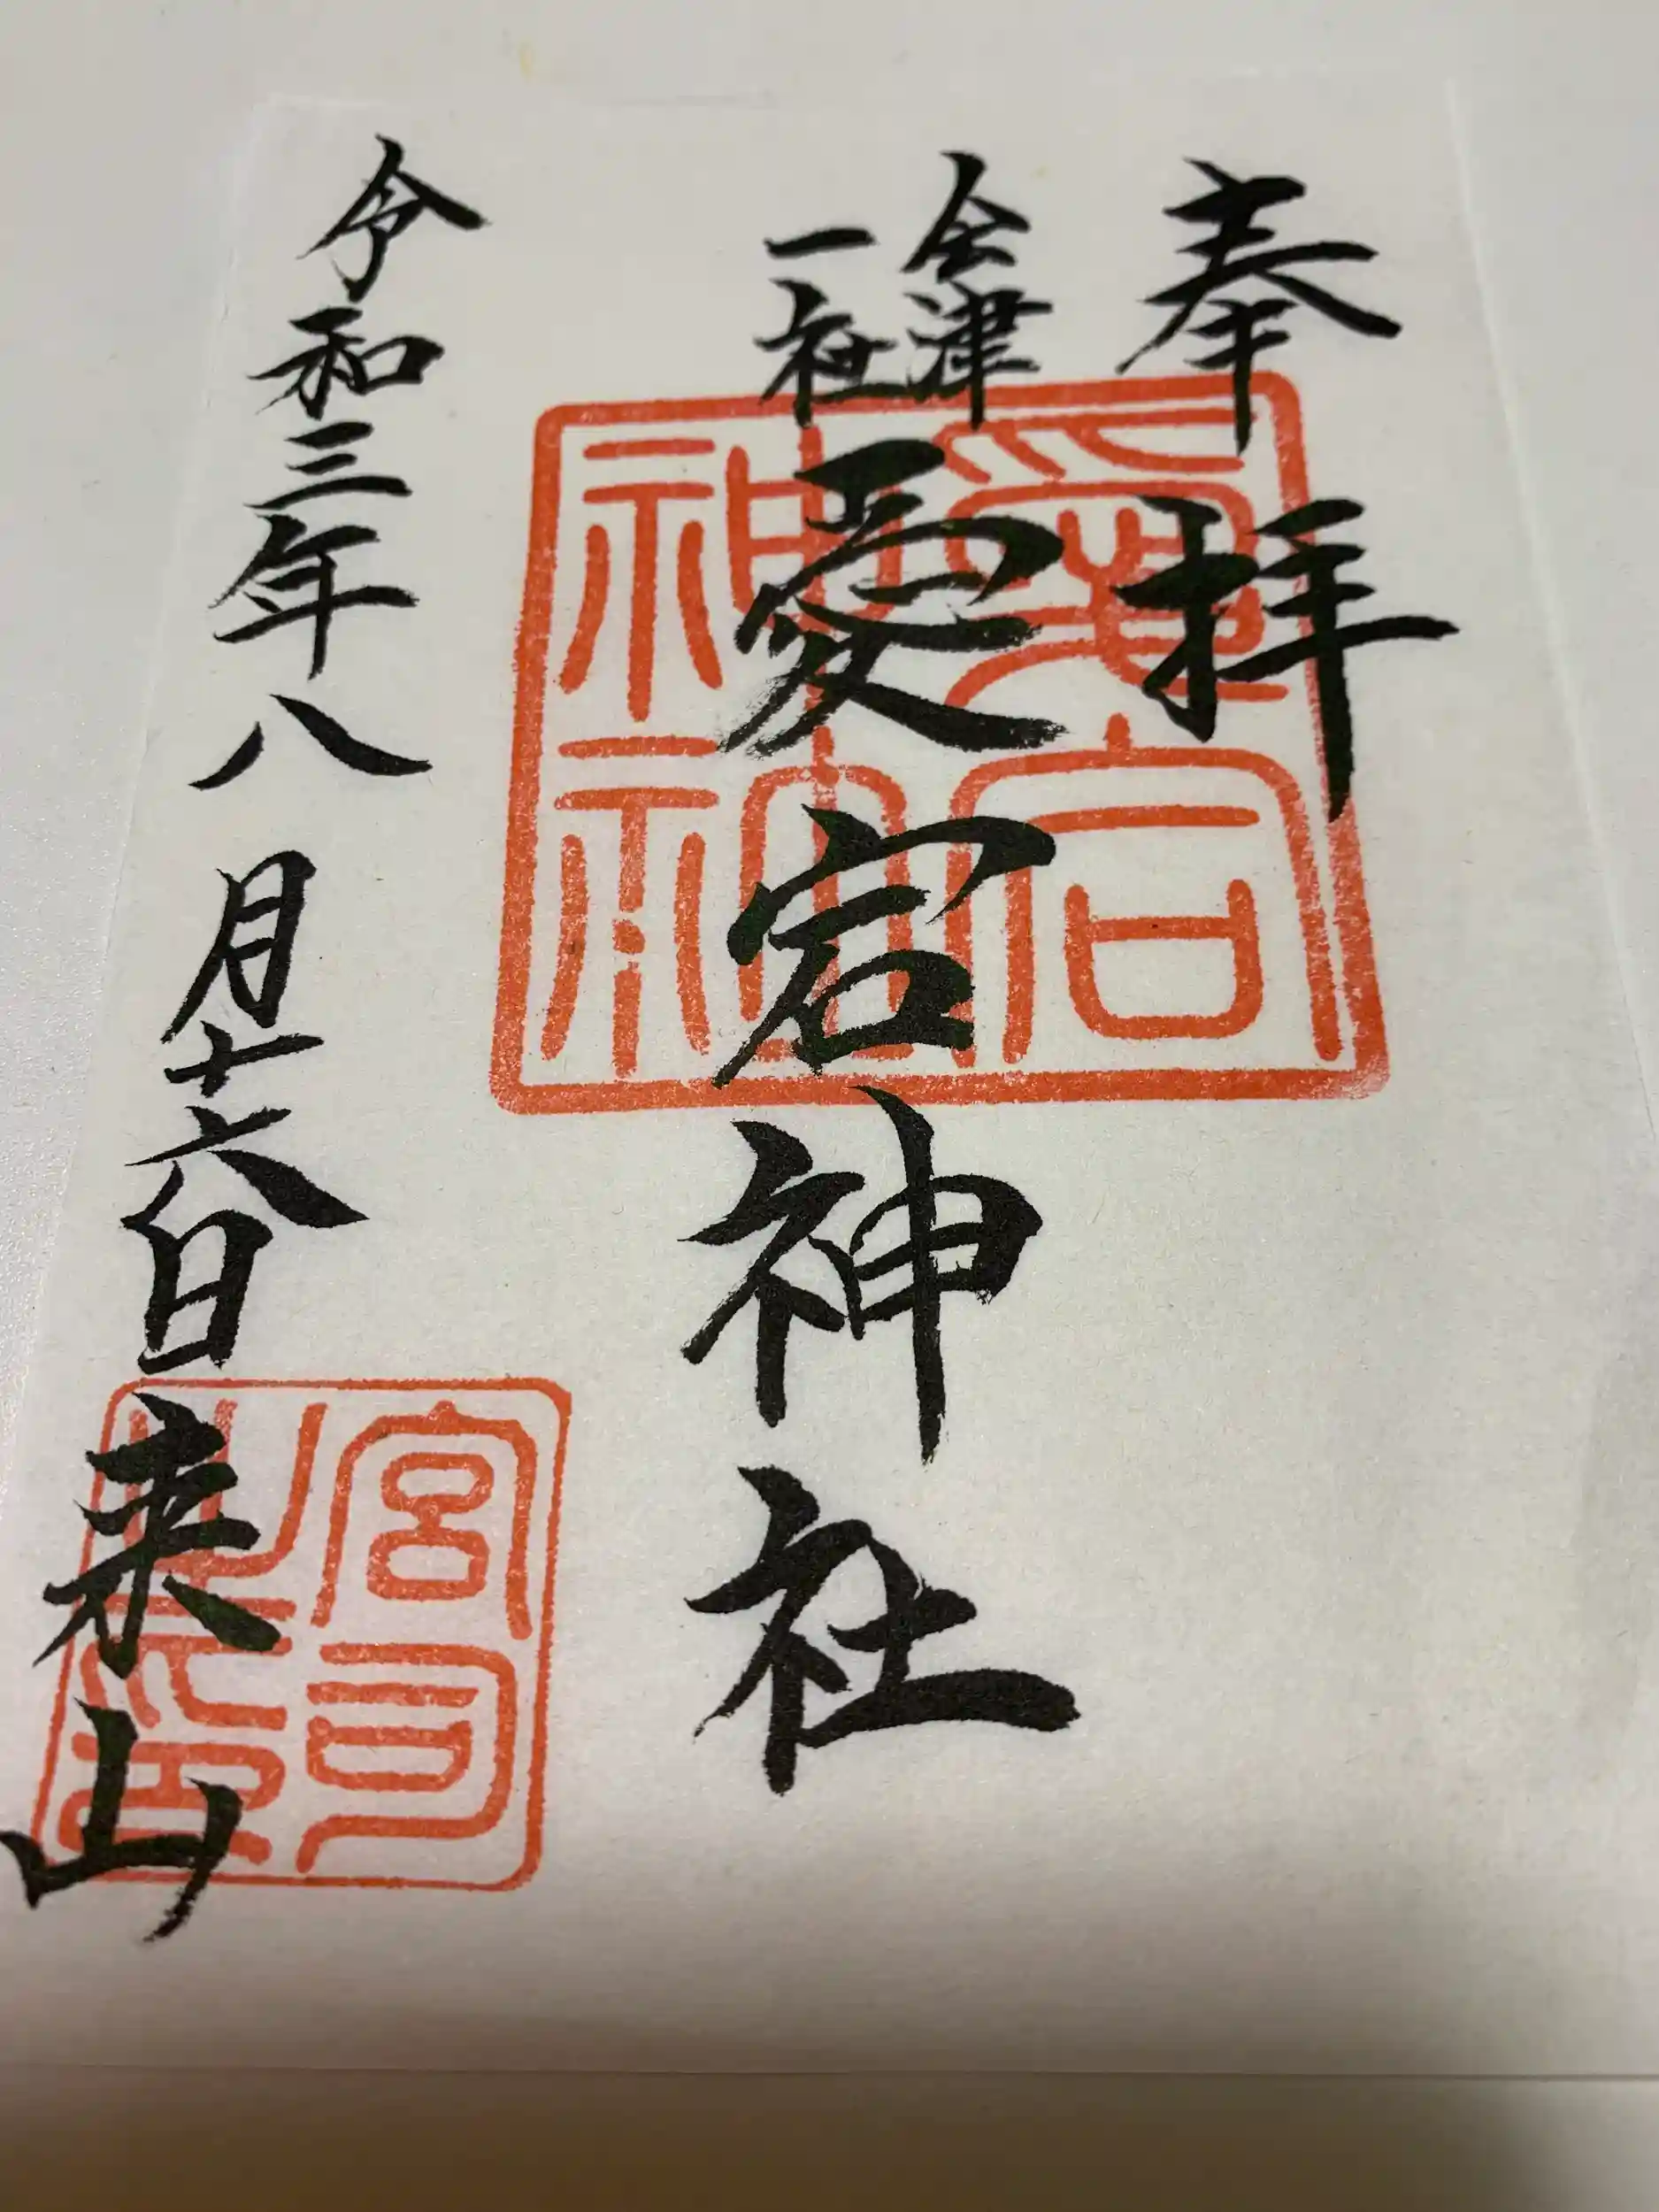 奉拝
会津
一社
愛宕神社
令和三年八月十六日来山
愛宕
神社
宮司
之印